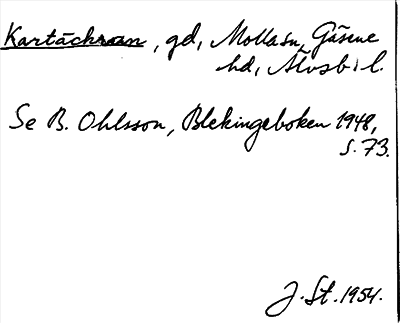 Kartåckran, gd, Mollasn, Gäsene
hd, Älvsb. l.
Se B. Ohlsson, Blekingeboken 1948,
s. 73.
J. St. 1954.